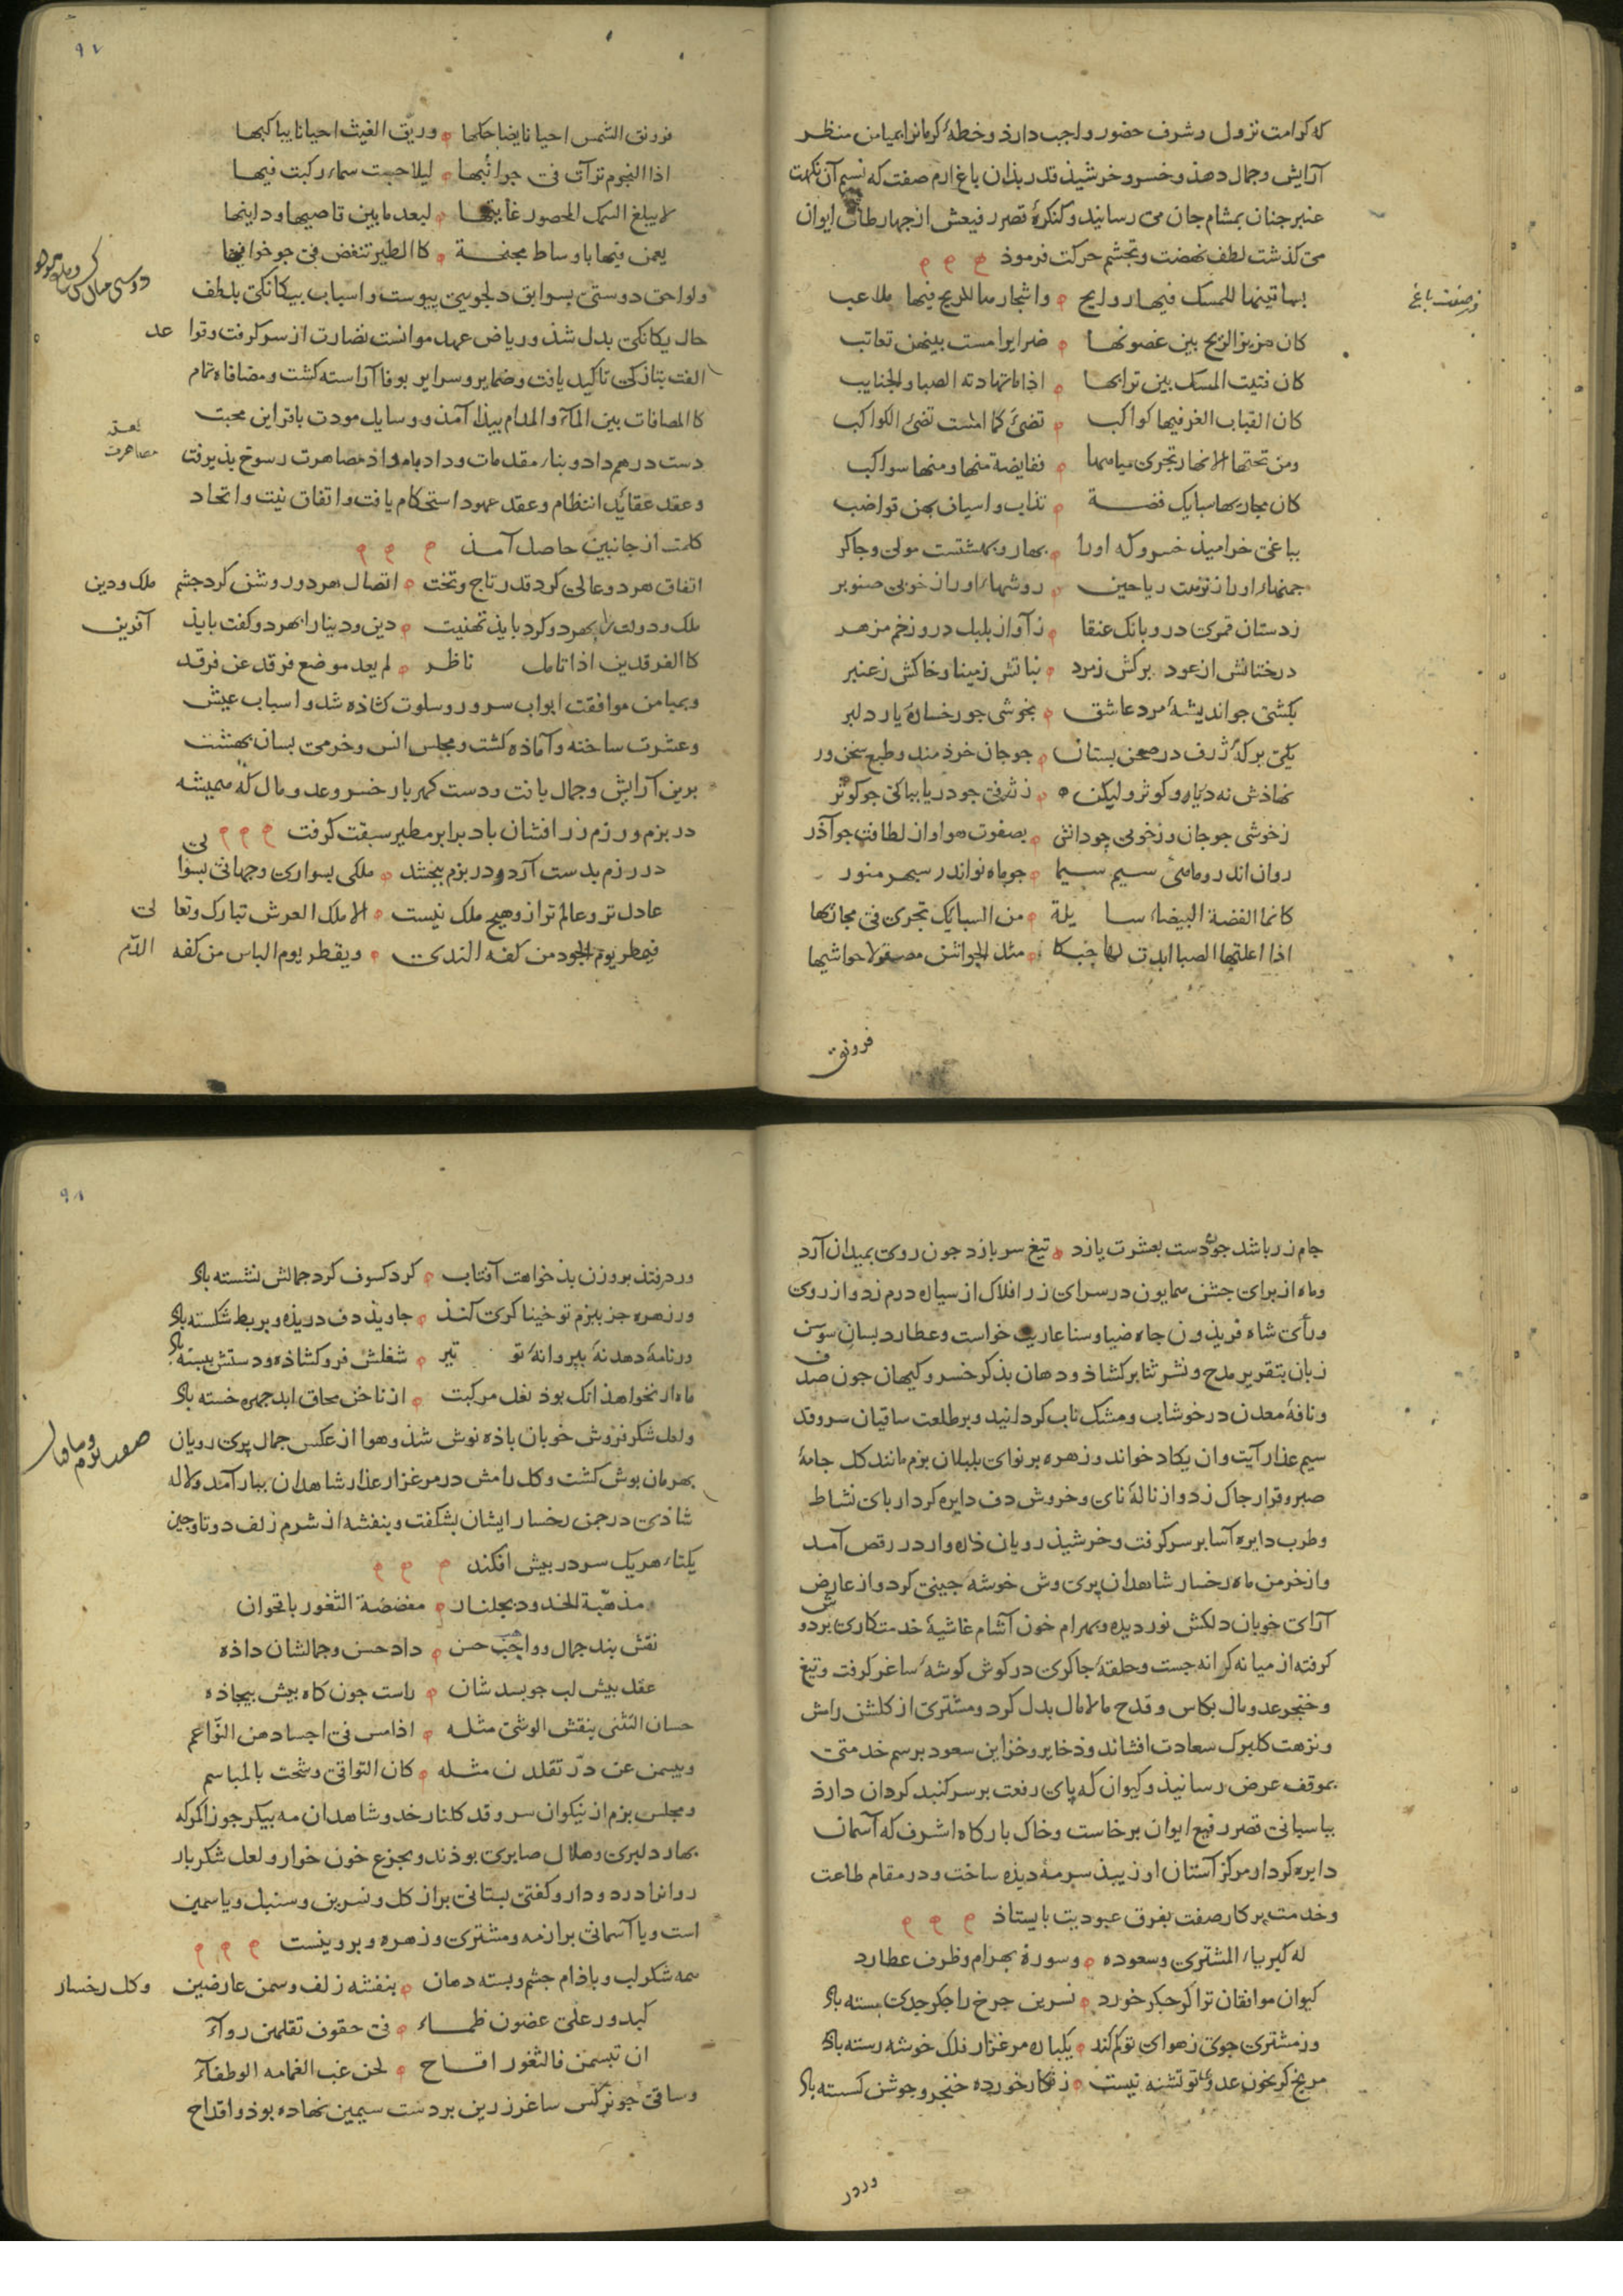 که کرامت نزول و شرف حضور واجب دارذ و خطهٔ کرمانرا بمیامن منظر
آرایش و جمال دهذ و خسرو خرشیذ قدر بذان باغ ارم صفت که نسیم آن نکهت
عنبر جنان بمشام جان می رسانید و کنکرهٔ قصر رفیعش از چهار طاق ایوان
می کذشت لطف نهضت و تجشم حرکت فرموذ
بساتینها للمسک فیها روایح واشجارها للریح فیها ملاعب
در صفت باغ
کان هزیز الریح بین غصونها ضرایر امست بینهن تعاتب
کان فتیت المسک بین ترابها اذا ما تهادته الصبا والجنایب
کان القباب الغر فیها کواکب تضئ کما امست تضئ الکواکب
ومن تحتها الانهار تجری میاهها ففایضة منها ومنها سواکب
کان مجاریها سبایک فضة تذاب واسیاف بهن قواضب
بباغی خرامیذ خسرو که او را بهار و بهشتست مولی و چاکر
چمنهاء او را ز نزهت ریاحین روشهاء او را ز خوبی صنوبر
ز دستان قمری درو بانک عنقا ز آواز بلبل درو زخم مزهر
درختانش از عود برکش زمرد نباتش ز مینا و خاکش ز عنبر
بکشتی جو اندیشهٔ مرد عاشق بخوشی جو رخسارهٔ یار دلبر
یکی برکهٔ ژرف در صحن بستان جو جان خردمند و طبع سخن ور
نهاذش نه دریا و کوثر ولیکن ز ژرفی جو دریا بپاکی جو کوثر
ز خوشی جو جان و ز خوبی جو دانش بصفوت هوا و از لطافت جو آذر
روان اندرو ماهئ سیم سیما جو ماه نو اندر سپهر منور
کانما الفضة البیضاء سایلة من السبایک تجری فی مجاریها
اذا اعلتها الصبا ابدت لها حبکا مثل الجواشن مصقولا حواشیها
فرونق
٩٧
فرونق الشمس احیانا یضاحکها وریّق الغیث احیانا یباکیها
اذا النجوم ترآت فی جوانبها لیلا حسبت سماء رکبت فیها
لا یبلغ السمک المحصور غایتها لبعد ما بین قاصیها ودانیها
یعمن فیها باوساط مجنحة کالطیر تنغض فی جو خوافیها
ولواحق دوستی بسوابق دلجویی پیوست و اسباب بیکانکی بلطف
حال یکانکی بدل شذ و ریاض عهد موانست نضارت از سر کرفت و قواعد
الفت بتازکی تاکید یافت و ضمایر و سرایر بوفا آراسته کشت و مصافاه تمام
کالمصافات بین المآء والمدام بیذا آمذ و وسایل مودت باقراین محبت
دست درهم داد و بناء مقدمات وداد بامداد مصاهرت رسوخ بذیرفت
مصاهرت
و عقد عقاید انتظام و عقد عهود استحکام یافت و اتفاق نیت و اتحاد
کلمت از جانبین حاصل آمذ
اتفاق هر دو عالی کرد قدر تاج و تخت اتصال هر دو روشن کرد جشم ملک و دین
ملک و دولت را بهر دو کرد باید تهنیت دین و دنیا را بهر دو کفت باید آفرین
کالفرقدین اذا تامل ناظر لم یعد موضع فرقد عن فرقد
و بمیامن موافقت ابواب سرور و سلوت کشاذه شد و اسباب عیش
و عشرت ساخته و آماذه کشت و مجلس انس و خرمی بسان بهشت
برین آرایش و جمال یافت و دست کهر بار خسرو عدو مال که همیشه
در بزم و رزم زر افشان باد بر ابر مطیر سبقت کرفت
در رزم بدست آرد و در بزم ببخشد ملکی بسواری و جهانی بسوالی
عادل تر و عالم تر ازو هیچ ملک نیست الا ملک العرش تبارک و تعالی
فیمطر یوم الجود من کفه الندی ویقطر یوم الباس من کفه الدم
جام زر باشد جون دست بعشرت یازد تیغ سر بازد جون روی بمیدان آرد
و ماه از برای جشن همایون در سرای زر افلاک از سیاره درم زد و از روی
و رأی شاه فریذون جاه ضیا و سنا عاریت خواست و عطارد بسان سوسن
زبان بتقریر مدح و نشر ثنا برکشاذ و دهان بذکر خسرو کیهان جون صدف
و نافهٔ معدن در خوشاب و مشک ناب کردانید و بر طلعت ساقیان سرو قد
سیم عذار آیت وان یکاد خواند و زهره بر نوای بلبلان بزم مانند کل جامهٔ
صبر و قرار جاک زد و از نالهٔ نای و خروش دف دایره کردار بای نشاط
و طرب دایره آسا بر سر کرفت و خرشیذ رویان ذره وار در رقص آمد
و از خرمن ماه رخسار شاهدان پری وش خوشه جینی کرد و از عارض
آرای خوبان دلکش نور دیده و بهرام خون آشام غاشیهٔ خدمتکاری بر دوش
کرفته از میانه کرانه جست و حلقهٔ جاکری در کوش کوشهٔ ساغر کرفت و تیغ
و خنجر عدو مال بکاس و قدح مالامال بدل کرد و مشتری از کلشن رامش
و نزهت کلبرک سعادت افشاند و ذخایر و خزاین سعود برسم خدمتی
بموقف عرض رسانیذ و کیوان که پای رفعت بر سر کنبد کردان دارذ
بپاسبانی قصر رفیع ایوان برخاست و خاک بارکاه اشرف که آسمان
دایره کردار مرکز آستان او زیبذ سرمهٔ دیذه ساخت و در مقام طاعت
و خدمت پرکار صفت بفرق عبودیت بایستاذ
له کبریاء المشتری وسعوده وسورة بهرام وظرف عطارد
کیوان موافقان ترا کر جکر خورد نسرین جرخ را جکر جدی مسته باذ
ور مشتری جوی ز هوای تو کم کند یکباره مرغزار فلک خوشه رسته باذ
مریخ کر بخون عدوی تو تشنه نیست زنکار خورده خنجر و جوشن کسسته باذ
ورور
٩٨
ور در فتد بروزن بذ خواهت آفتاب کرد کسوف کرد جمالش نشسته باذ
ور زهره جز ببزم تو خنیاکری کند جاوید دف دریذه و بربط شکسته باذ
ور نامهٔ دهد نه بپروانهٔ تو تیر شغلش فرو کشاذه و دستش ببسته باذ
ماه ار نخواهذ انک بوذ نعل مرکبت از ناخن محاق ابد جهره خسته باذ
و لعل شکر فروش خوبان باذه نوش شذ و هوا از عکس جمال پری رویان
بهرمان پوش کشت و کل رامش در مرغزار عذار شاهدان ببار آمد و لاله
شاذی در چمن رخسار ایشان بشکفت و بنفشه از شرم زلف دوتا و جین
یکتاء هر یک سر در بیش افکند
مذهبّة الخدود بجلنار مفضضة الثغور باقحوان
نقش بند جمال و واجب حسن داد حسن و جمالشان داذه
عقد بیش لب جو بسد شان راست جون کاه بیش بیجاذه
حسان التثنی ینقش الوشی مثله اذا مسن فی اجسادهن النّواعم
ویبسمن عن درّ تقلدن مثله کان التراقی وشحت بالمباسم
و مجلس بزم از نیکوان سرو قد کلنار خد و شاهدان مه بیکر جوزا کمر که
بهار دلبری و هلال صابری بوذند و بجزع خون خوار و لعل شکر بار
روانرا درد و دارو کفتی بستانی بر از کل و نسرین و سنبل و یاسمین
است و یا آسمانی بر از مه و مشتری و زهره و بروینست
همه شکر لب و باذام جشم و بسته دهان بنفشه زلف و سمن عارضین و کل رخسار
کبدور علی غصون ظماء فی حقوف تقلهن روآء
ان تبسمن فالثغور اقاح لحن غب الغمامه الوطفآء
و ساقی جو نرکس ساغر زرین بر دست سیمین نهاده بوذ و اقداح